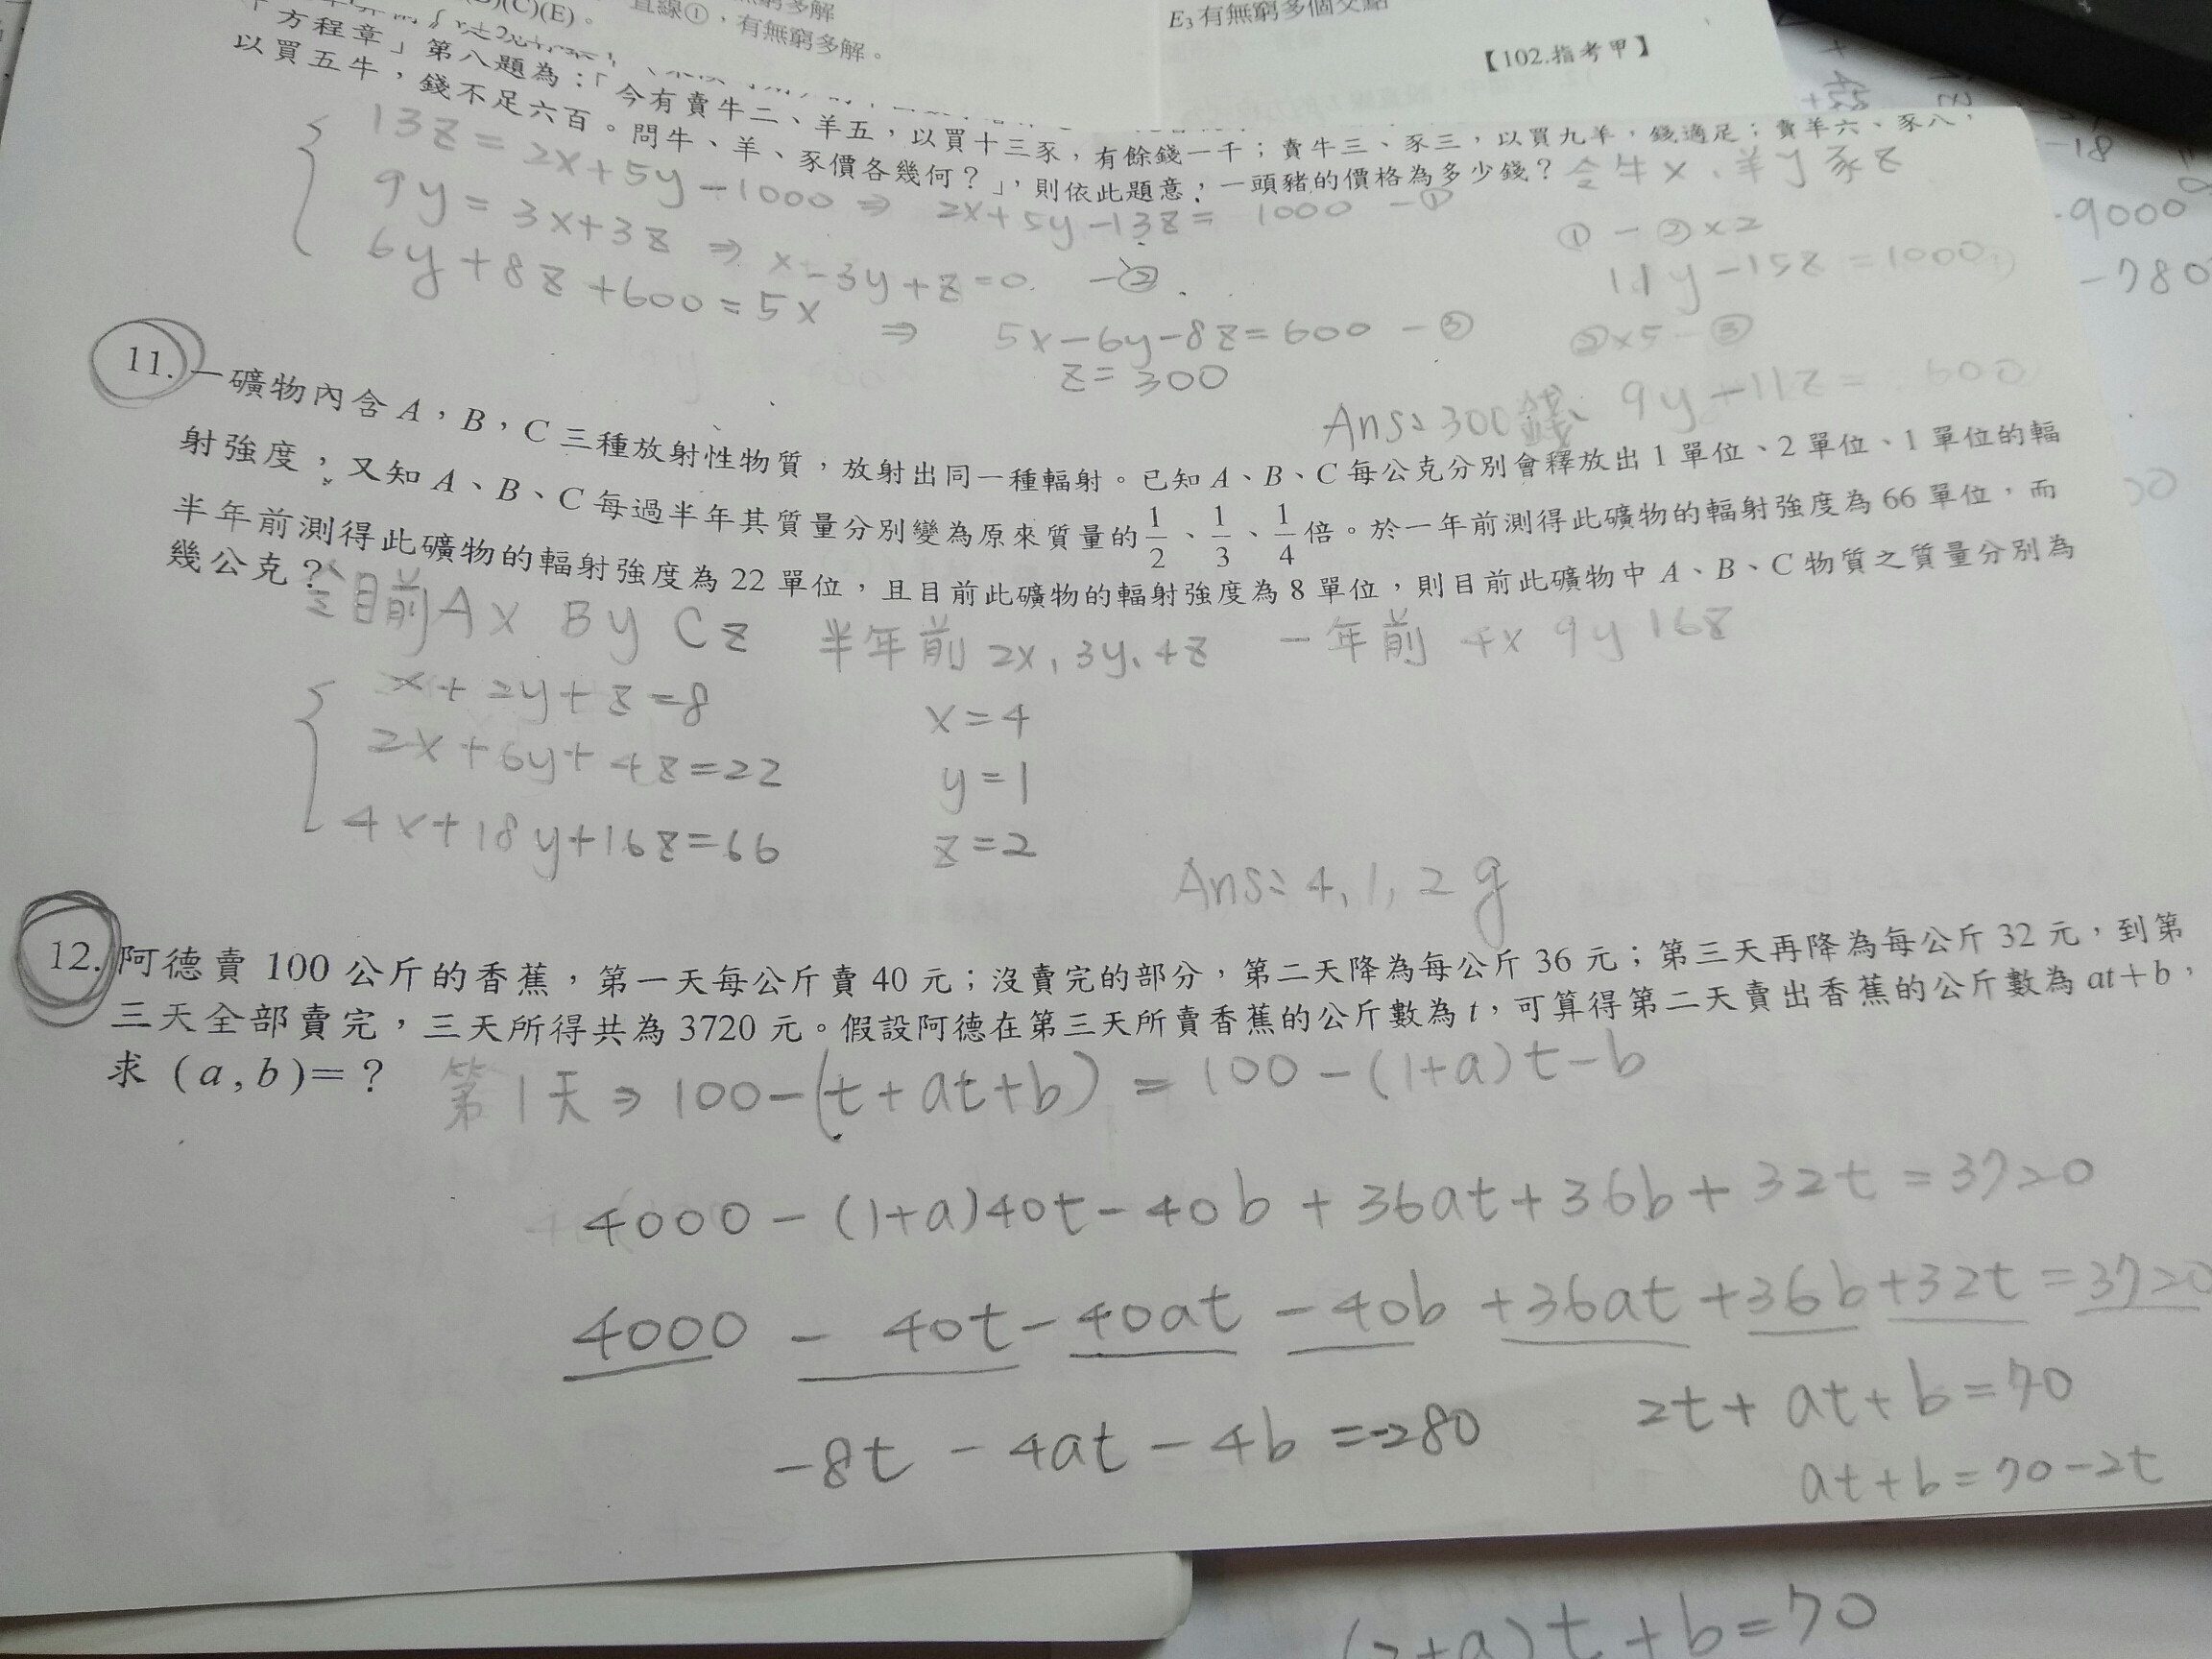 )(C)(E)。
直線①,有無窮多解。
無窮多解
E₃有無窮多個交點
【102.指考甲】
方程章」第八題為:「今有賣牛二、羊五,以買十三豕,有餘錢一千;賣牛三、豕三,以買九羊,錢適足;賣羊六、豕八,
以買五牛,錢不足六百。問牛、羊、豕價各幾何?」,則依此題意,一頭豬的價格為多少錢?
令牛x、羊y 豕z
13z=2x+5y-1000 ⇒ 2x+5y-13z=1000 -①
9y=3x+3z ⇒ x-3y+z=0 -②
6y+8z+600=5x
⇒ 5x-6y-8z=600 -③
z=300
①-②×2
11y-15z=1000
②×5-③
9y-11z=
600
Ans:300錢
-18
-9000
-780
11. 一礦物內含 A,B,C 三種放射性物質,放射出同一種輻射。已知 A、B、C 每公克分別會釋放出 1 單位、2 單位、1 單位的輻
射強度,又知 A、B、C 每過半年其質量分別變為原來質量的 1/2、1/3、1/4 倍。於一年前測得此礦物的輻射強度為 66 單位,而
半年前測得此礦物的輻射強度為 22 單位,且目前此礦物的輻射強度為 8 單位,則目前此礦物中 A、B、C 物質之質量分別為
幾公克?
令目前Ax By Cz 半年前 2x,3y,4z 一年前 4x 9y 16z
x+2y+z=8
2x+6y+4z=22
4x+18y+16z=66
x=4
y=1
z=2
Ans:4,1,2g
12. 阿德賣 100 公斤的香蕉,第一天每公斤賣 40 元;沒賣完的部分,第二天降為每公斤 36 元;第三天再降為每公斤 32 元,到第
三天全部賣完,三天所得共為 3720 元。假設阿德在第三天所賣香蕉的公斤數為 t,可算得第二天賣出香蕉的公斤數為 at+b,
求 (a,b)=?
第1天⇒100-(t+at+b)=100-(1+a)t-b
4000-(1+a)40t-40b+36at+36b+32t=3720
4000-40t-40at-40b+36at+36b+32t=3720
-8t-4at-4b=-280
2t+at+b=70
at+b=70-2t
(2+a)t+b=70